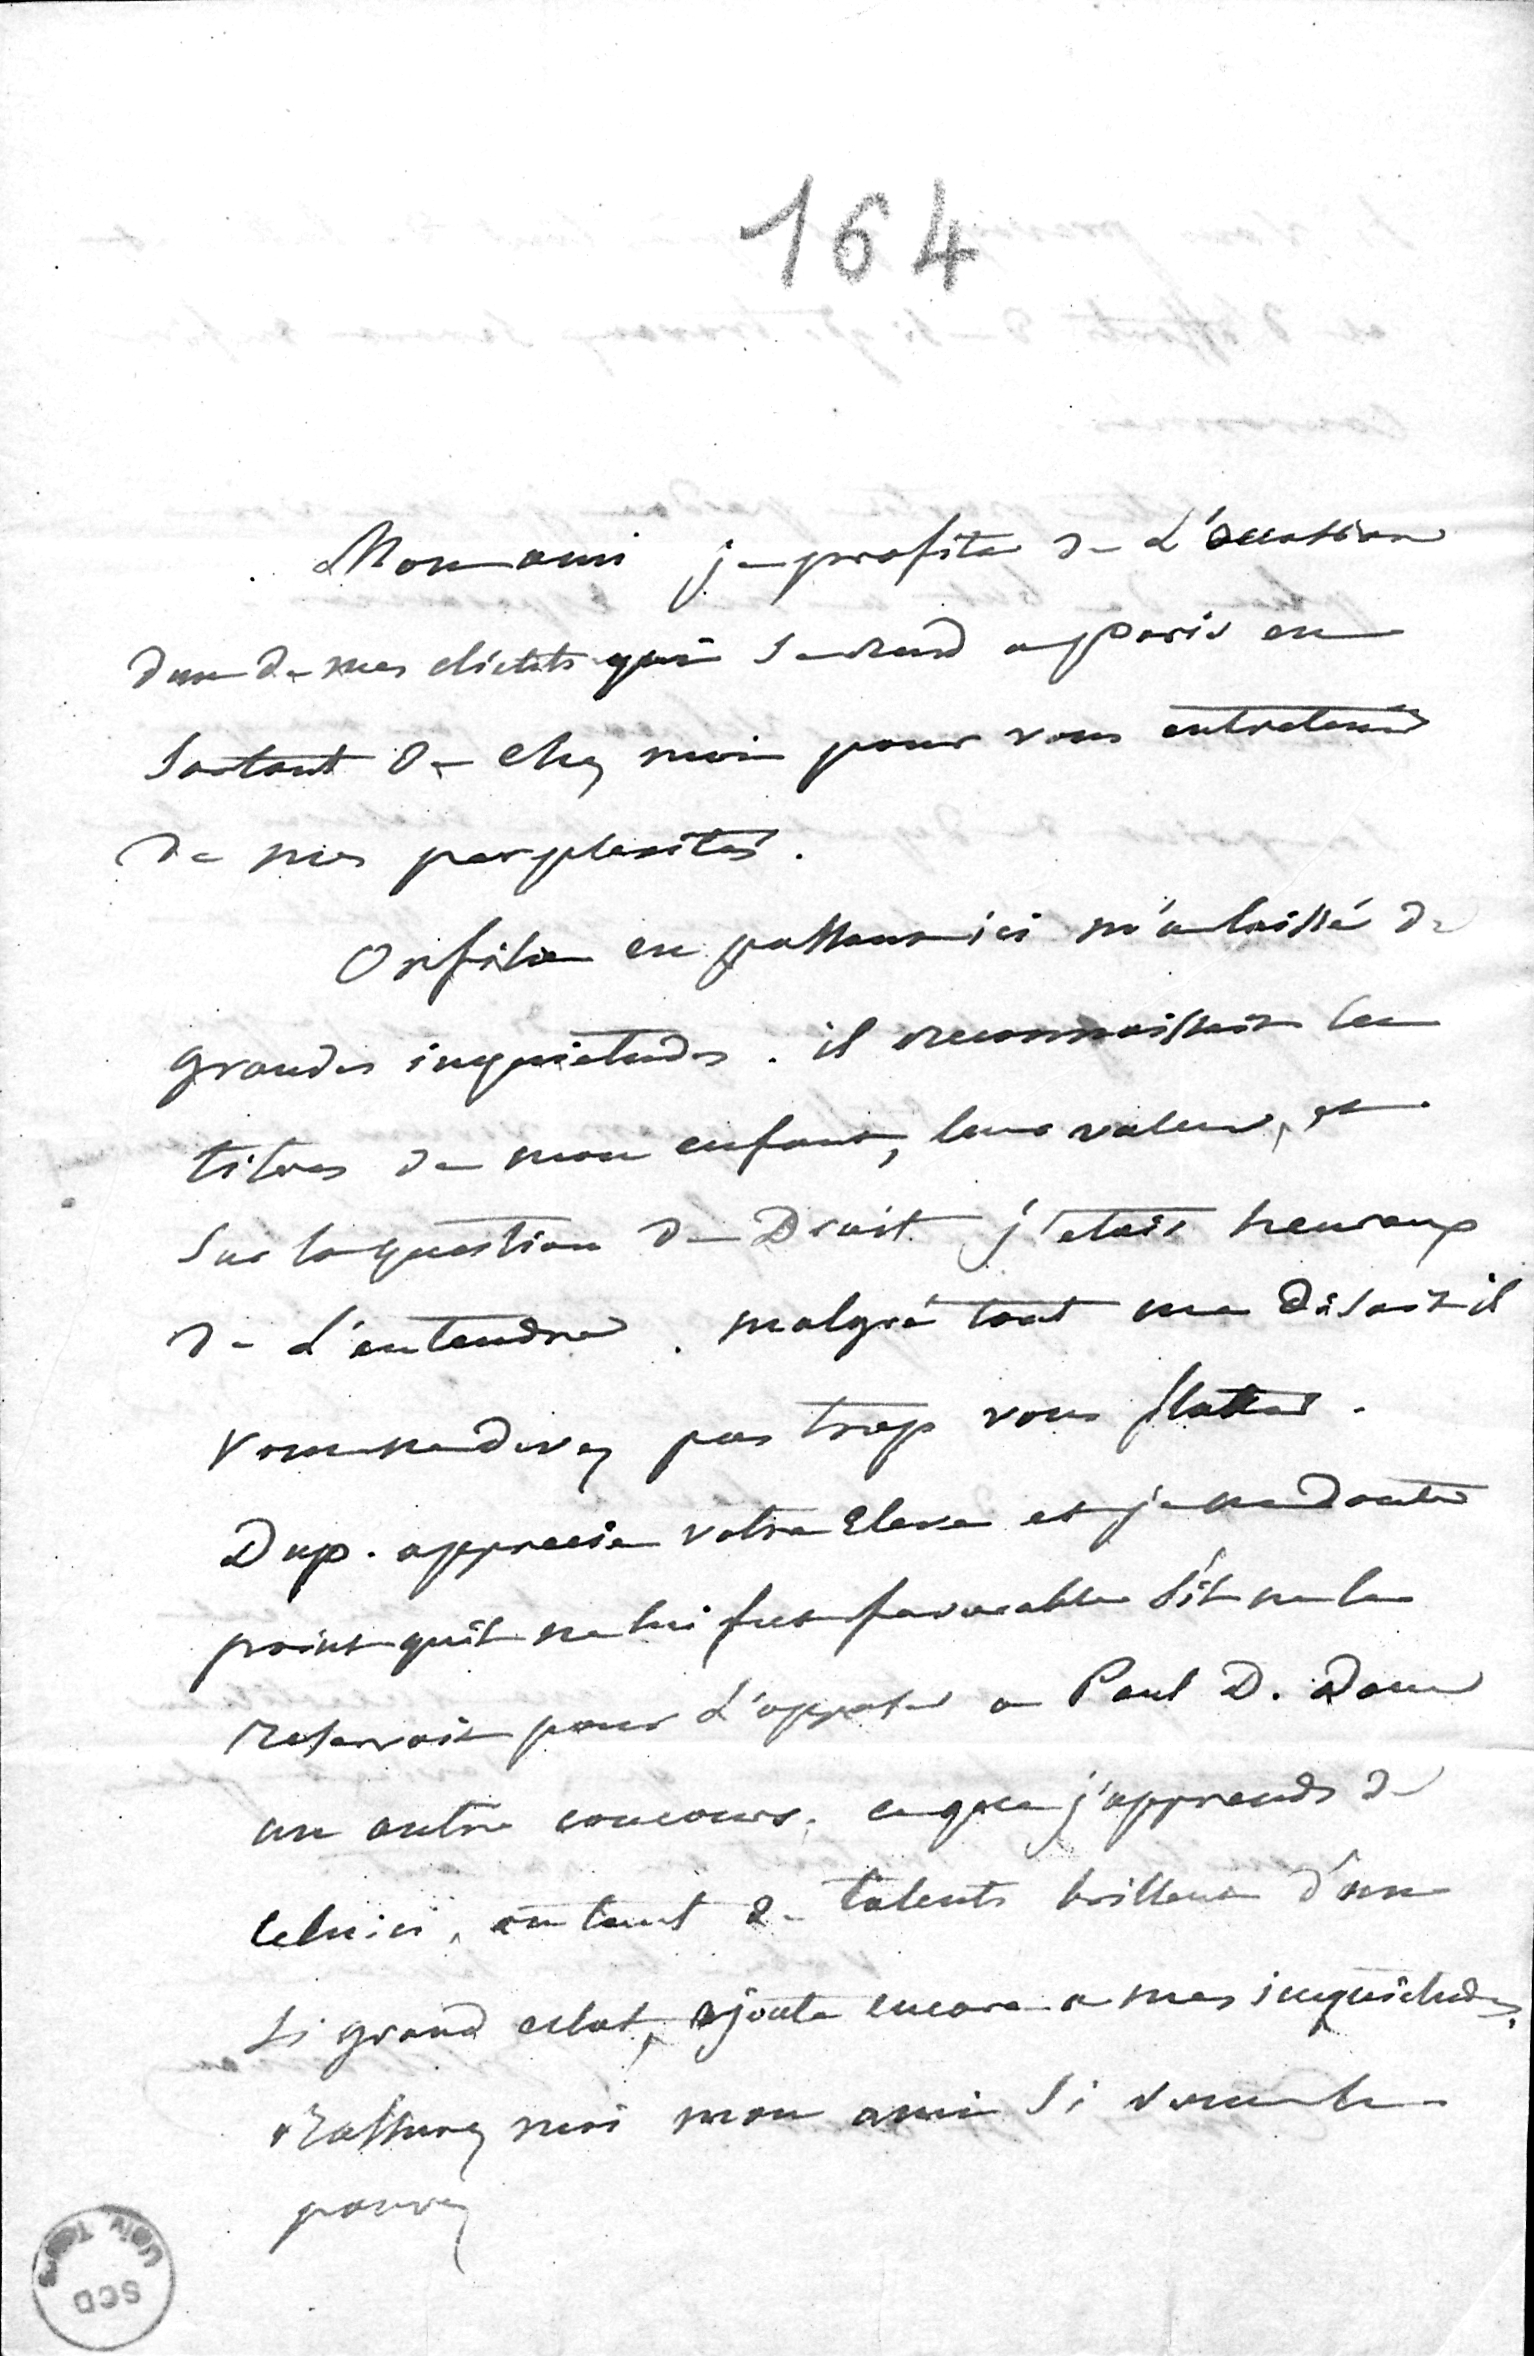 164
Mon ami je profite de L'occasion
d'un de mes clients qui se rend a Paris en
sortant de chez moi pour vous entretenir
de mes perplexites.
Orfila en passant ici m'a laissé de
grandes inquietudes. il reconnaissait les
titres de mon enfant, leur valeur, et
sur la question de Droit j'etais heureux
de L'entendre. malgré tout me disait il
vous ne devez pas trop vous flatter.
Dup. apprecie votre Eleve et je ne doute
point qu'il ne lui fut favorable s'il ne le
reservait pour L'opposer a Paul D. dans
un autre concours. ce que j'apprends de
celui ci, en tant de talents brillant d'un
si grand eclat, ajoute encore a mes inquietudes.
Rassurez moi mon ami si vous le
pouvez
Univ Tours
SCD